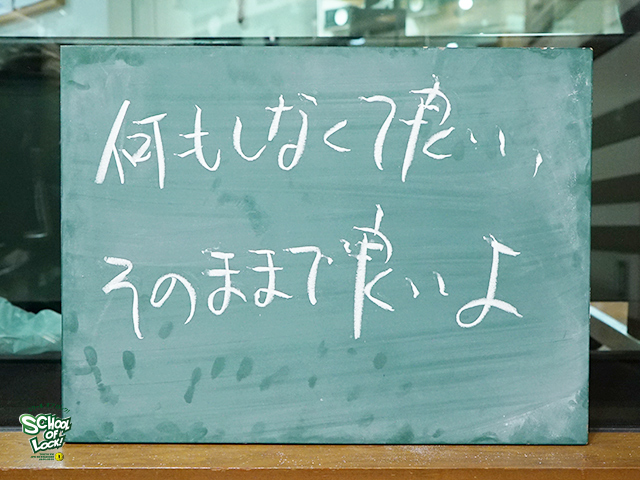 何もしなくて良い,
そのままで良いよ
SCHOOL
OF
LOCK!